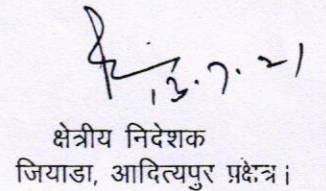 13.7.21
क्षेत्रीय निदेशक
जियाडा, आदित्यपुर प्रक्षेत्र।